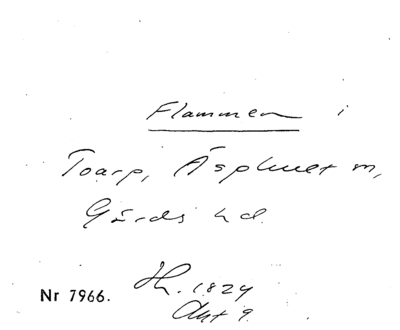 Flammen i
Toarp, Äsphult m,
Gärds hd.
Nr 7966. Hh. 1824
Akt 9.